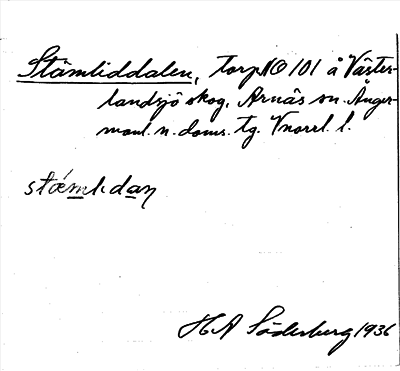 Stämliddalen, torp NO 101 å Väster-
landsjö skog, Arnäs sn. Ånger-
manl. n. doms. tg. Vnorrl. l.
stǽmlıdaṇ
H A Söderburg 1936